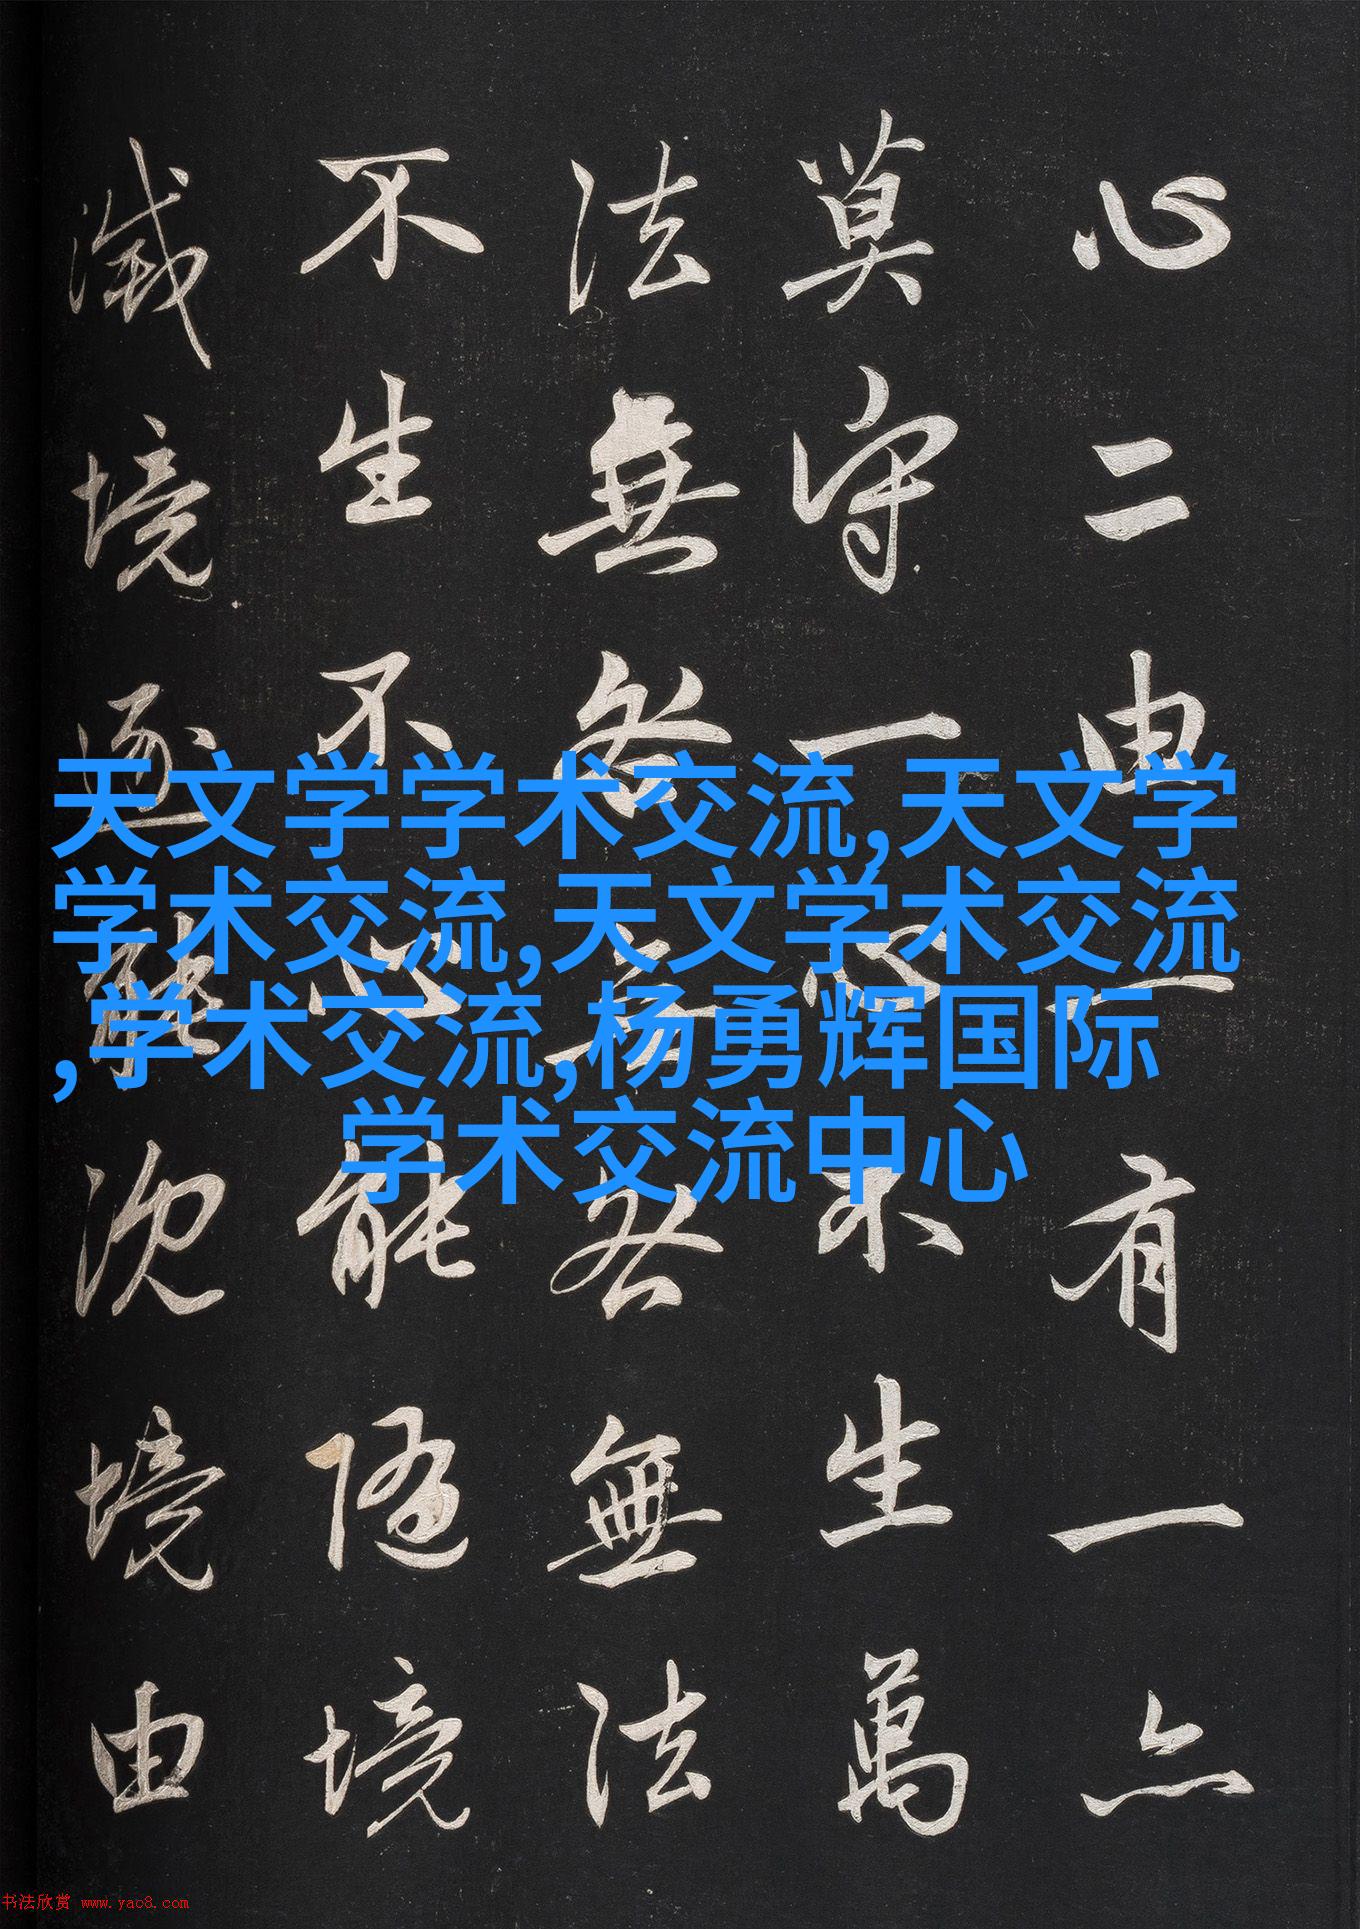 心二由一有一亦
莫守一心不生萬
法無咎無咎無法
不生不心能隨境
滅境逐能沉境由
天文学学术交流,天文学
学术交流,天文学术交流
,学术交流,杨勇辉国际
学术交流中心
书法欣赏 www.yac8.com